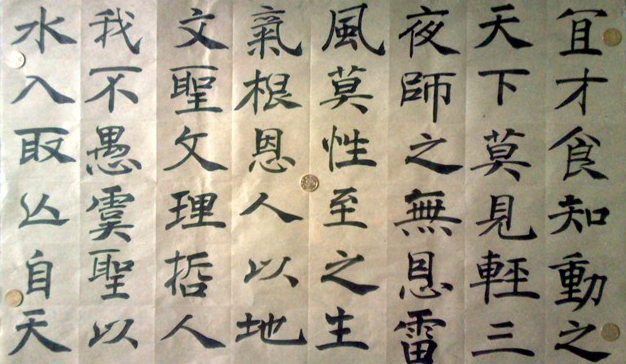 冝才食知動之
天下莫見輕三
夜師之無恩雷
風莫性至之生
氣根恩人以地
文聖攵理哲人
我不愚虞聖以
水入取自天